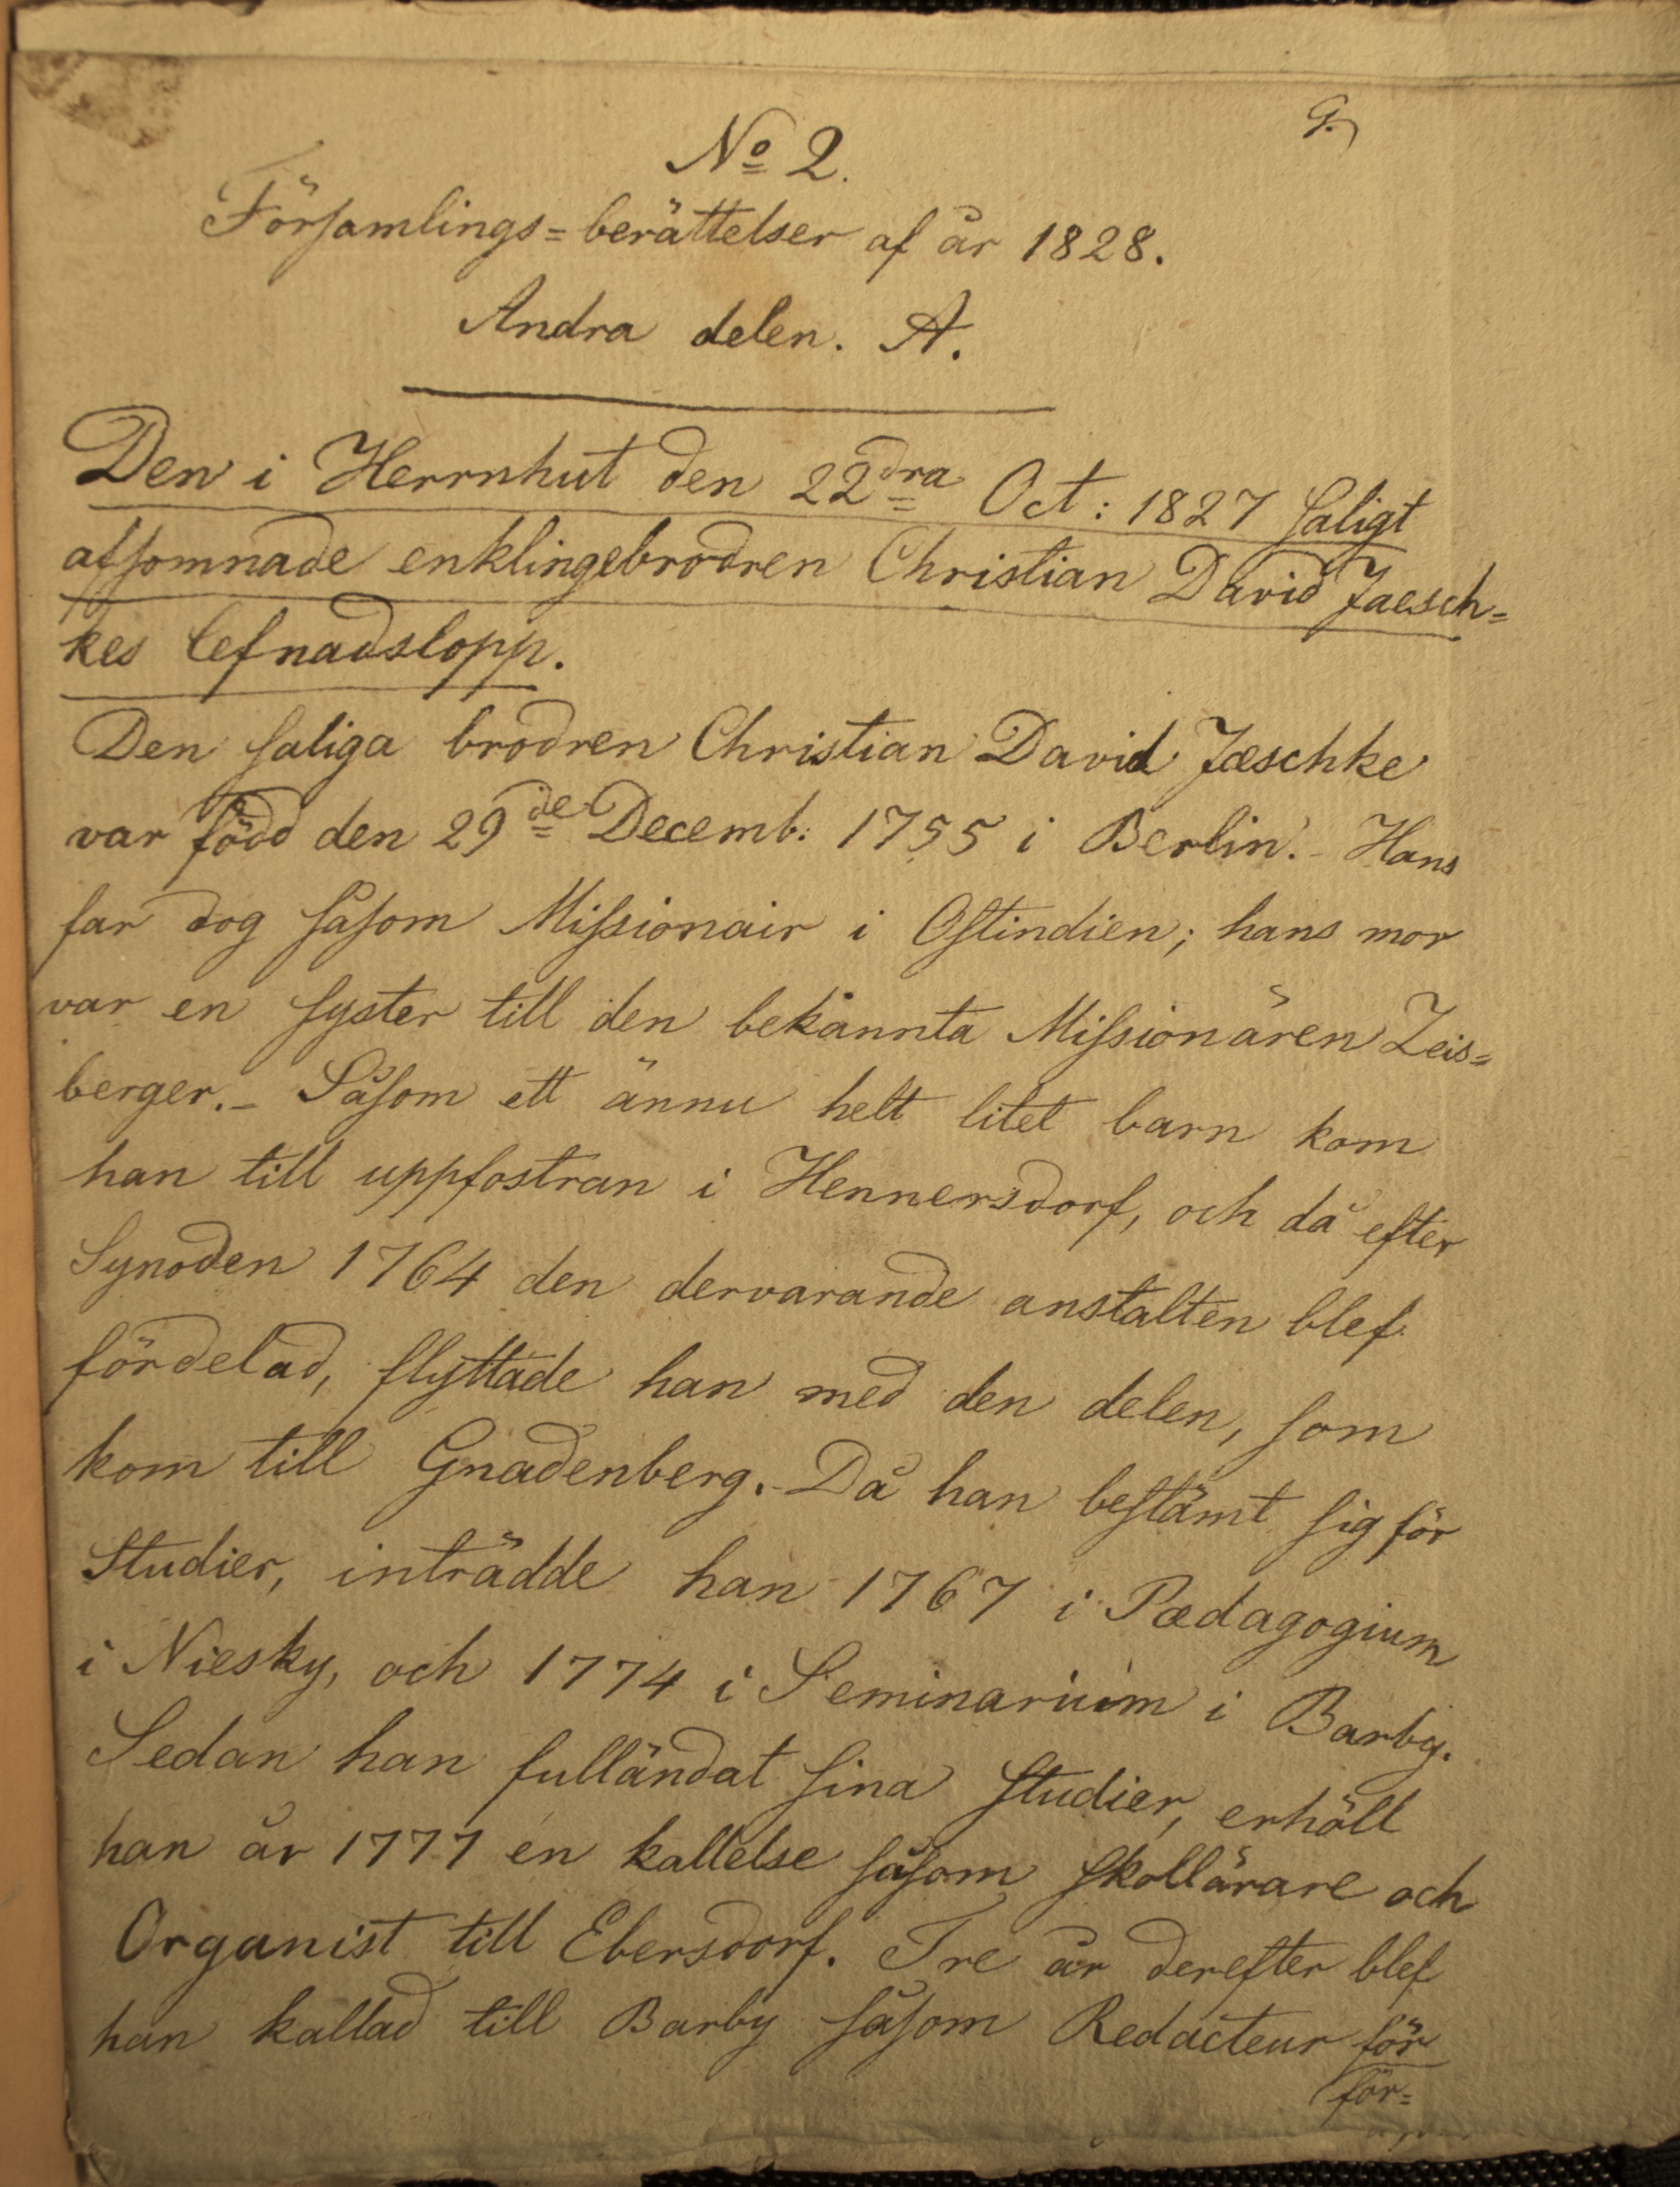 9.
No 2.
Församlings=berättelser af år 1828.
Andra delen. A.
Den i Herrnhut den 22dra Oct: 1827 saligt
afsomnade enklingebrodren Christian David Jaesch=
kes lefnadslopp.
Den saliga brodren Christian David Jæschke
var född den 29de Decemb: 1755 i Berlin. - Hans
far dog såsom Missionair i Ostindien; hans mor
var en syster till den bekännta Missionären Zeis=
berger. - Såsom ett ännu helt litet barn kom
han till uppfostran i Hennersdorf, och då efter
Synoden 1764 den dervarande anstalten blef
fördelad, flyttade han med den delen, som
kom till Gnadenberg. - Då han bestämt sig för
Studier, inträdde han 1767 i Pædagogium
i Niesky, och 1774 i Seminarium i Barby.
Sedan han fulländat sina studier, erhöll
han år 1777 en kallelse såsom skollärare och
Organist till Ebersdorf. Tre år derefter blef
han kallad till Barby såsom Redacteur för
för=